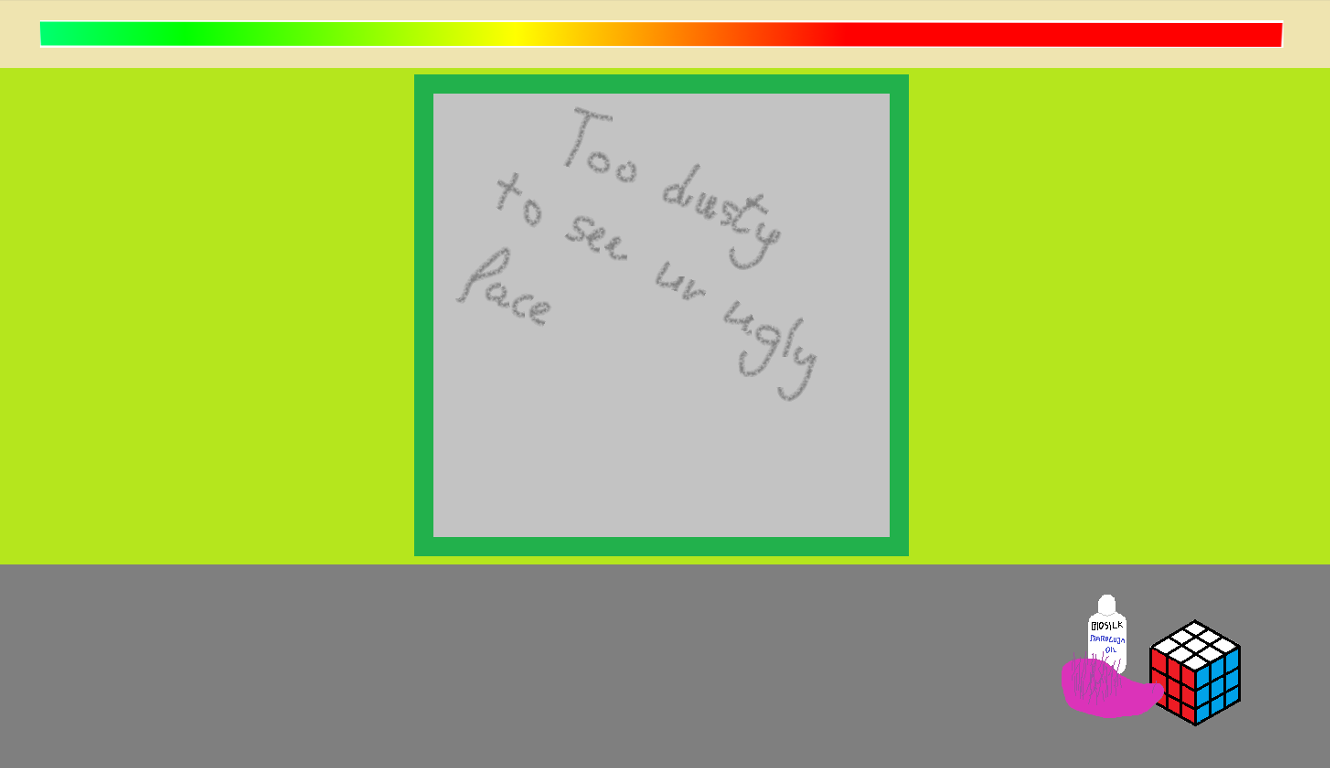 Too dusty
to see ur ugly
face
BIOSILK
OIL